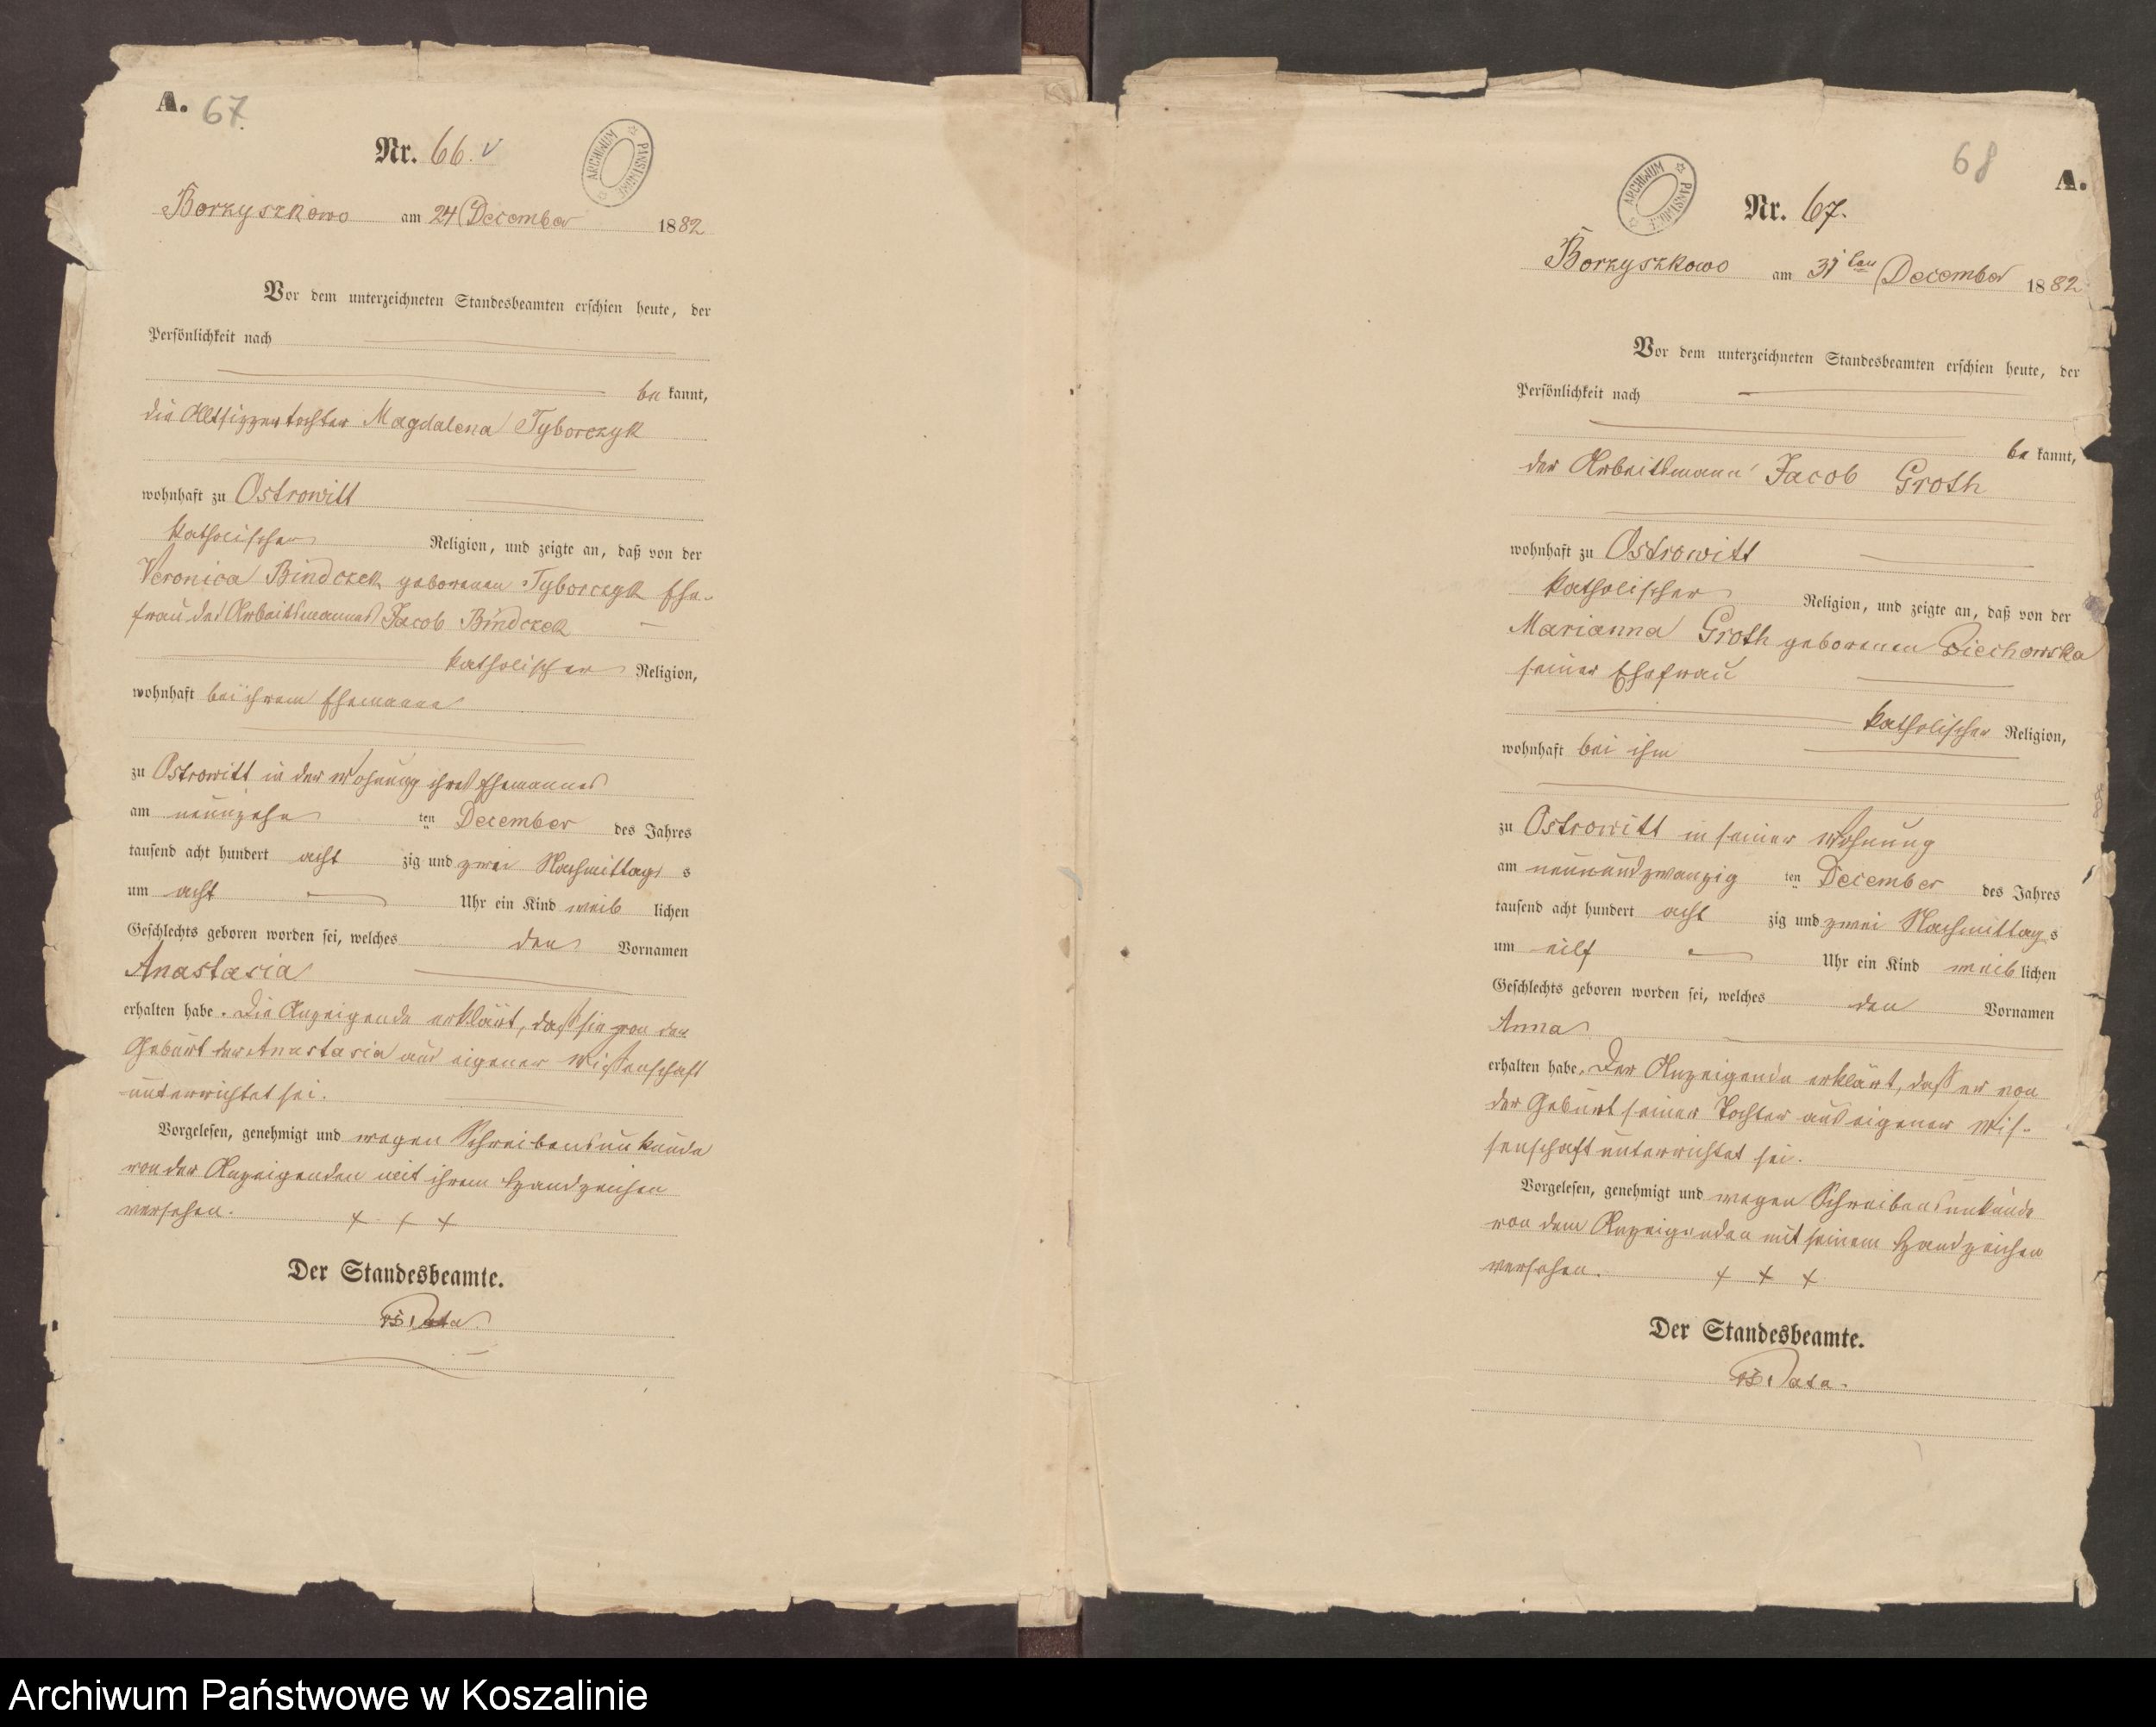 A. 67.
Nr. 66. v
ARCHIWUM PAŃSTWOWE
Borzyszkowo am 24 December 1882
Vor dem unterzeichneten Standesbeamten erschien heute, der
Persönlichkeit nach
be kannt,
die Altsitzertochter Magdalena Tyborczyk
wohnhaft zu Ostrowitt
katholischer Religion, und zeigte an, daß von der
Veronica Bindczek geborenen Tyborczyk Ehe-
frau des Arbeitsmannes Jacob Bindczek
katholischer Religion,
wohnhaft bei ihrem Ehemanne
zu Ostrowitt in der Wohnung ihres Ehemannes
am neunzehn ten December des Jahres
tausend acht hundert acht zig und zwei Nachmittags s
um acht Uhr ein Kind weib lichen
Geschlechts geboren worden sei, welches den Vornamen
Anastasia
erhalten habe. Die Anzeigende erklärt, daß sie von der
Geburt der Anastasia aus eigener Wissenschaft
unterrichtet sei.
Vorgelesen, genehmigt und wegen Schreibensunkunde
von der Anzeigenden mit ihrem Handzeichen
versehen. + + +
Der Standesbeamte.
Data.
68 A.
ARCHIWUM PAŃSTWOWE
Nr. 67.
Borzyszkowo am 31ten December 1882
Vor dem unterzeichneten Standesbeamten erschien heute, der
Persönlichkeit nach
be kannt,
der Arbeitsmann Jacob Groth
wohnhaft zu Ostrowitt
katholischer Religion, und zeigte an, daß von der
Marianna Groth geborenen Piechowska
seiner Ehefrau
katholischer Religion,
wohnhaft bei ihm
zu Ostrowitt in seiner Wohnung
am neunundzwanzig ten December des Jahres
tausend acht hundert acht zig und zwei Nachmittag s
um eilf Uhr ein Kind weib lichen
Geschlechts geboren worden sei, welches den Vornamen
Anna
erhalten habe. Der Anzeigende erklärt, daß er von
der Geburt seiner Tochter aus eigener Wis-
senschaft unterrichtet sei.
Vorgelesen, genehmigt und wegen Schreibensunkunde
von dem Anzeigenden mit seinem Handzeichen
versehen. + + +
Der Standesbeamte.
Data.
Archiwum Państwowe w Koszalinie